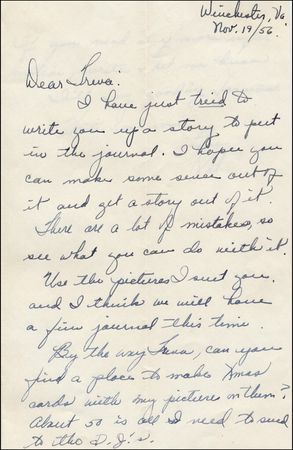 Winchester, Va
Nov. 19/56.
Dear Treva:
I have just tried to
write you up a story to put
in the journal. I hope you
can make some sense out of
it and get a story out of it.
There are a lot of mistakes, so
see what you can do with it.
Use the pictures I sent you.
and I think we will have
a fine journal this time.
By the way Treva, can you
find a place to make Xmas
cards with my picture on them?
About 50 is all I need to send
to the D.J's.